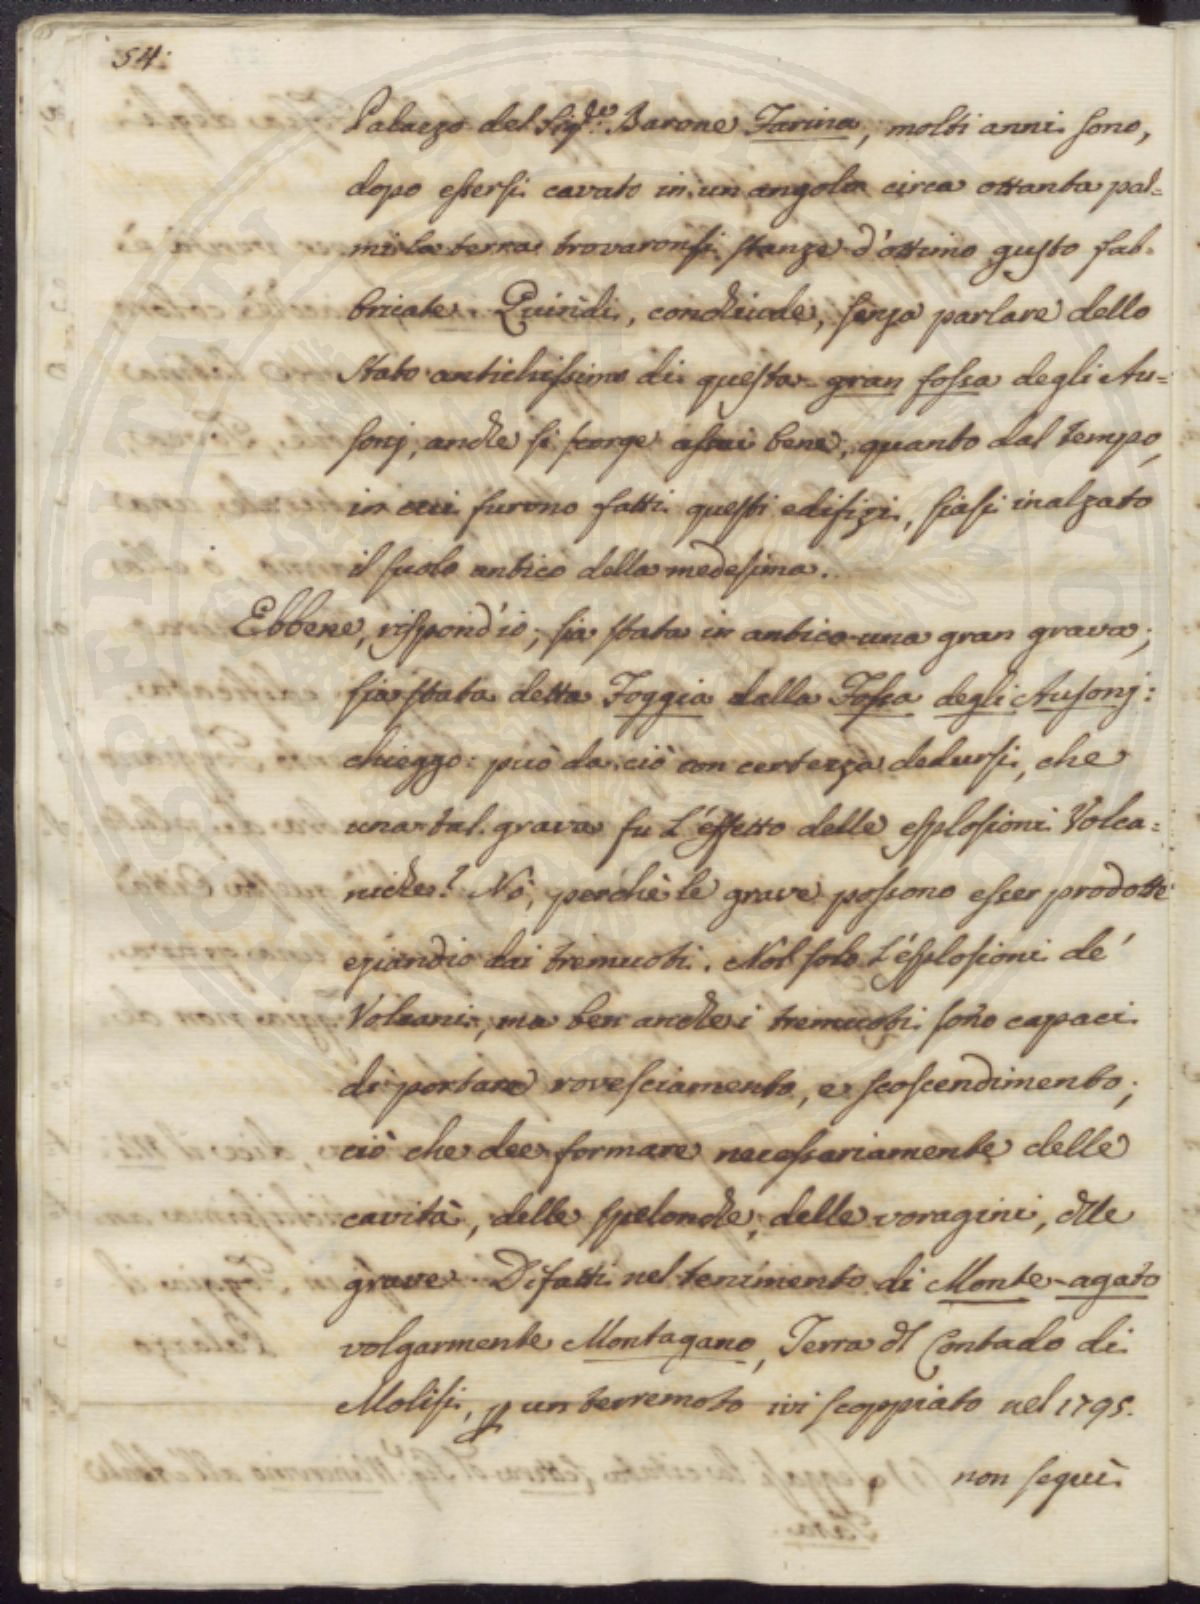 54.
Palazzo del Sig.re Barone Farina, molti anni sono,
dopo essersi cavato in un angolo circa ottanta pal=
mi la terra trovaronsi stanze d'ottimo gusto fab=
bricate. Quindi, conchiude, senza parlare dello
stato antichissimo di questa gran fossa degli Au=
sonj, anche si scorge assai bene, quanto dal tempo,
in cui furono fatti questi edifizi, siasi inalzato
il suolo antico della medesima.
Ebbene, rispond'io; sia stata in antico una gran grava;
sia stata detta Foggia dalla Fossa degli Ausonj:
chieggo: può da ciò con certezza dedursi, che
una tal grava fu l'effetto delle esplosioni Volca=
niche? Nò; perchè le grave possono esser prodotte
eziandio dai tremuoti. Nò solo l'esplosioni de'
Volcani, ma ben anche i tremuoti sono capaci
di portare rovesciamento, e scoscendimento;
ciò che dee formare necessariamente delle
cavità, delle spelonche, delle voragini, delle
grave. Difatti nel tenimento di Monte-agato
volgarmente Montagano, Terra del Contado di
Molisi, per un terremoto ivi scoppiato nel 1795.
non seguì